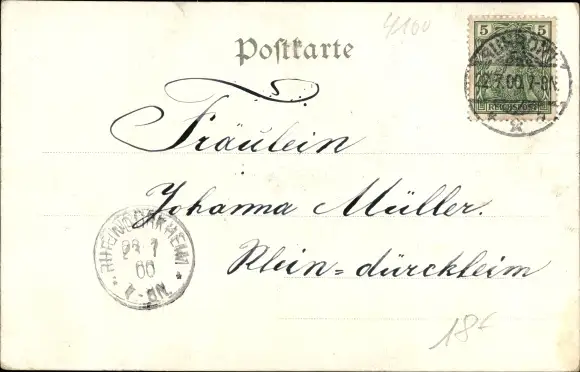 4100
Postkarte
5
REICHSPOST
22.7.00.7-8N.
Fräulein
Johanna Müller.
Rhein=dürckheim
RHEINDÜRKHEIM
23 7
00
-8N.
18€